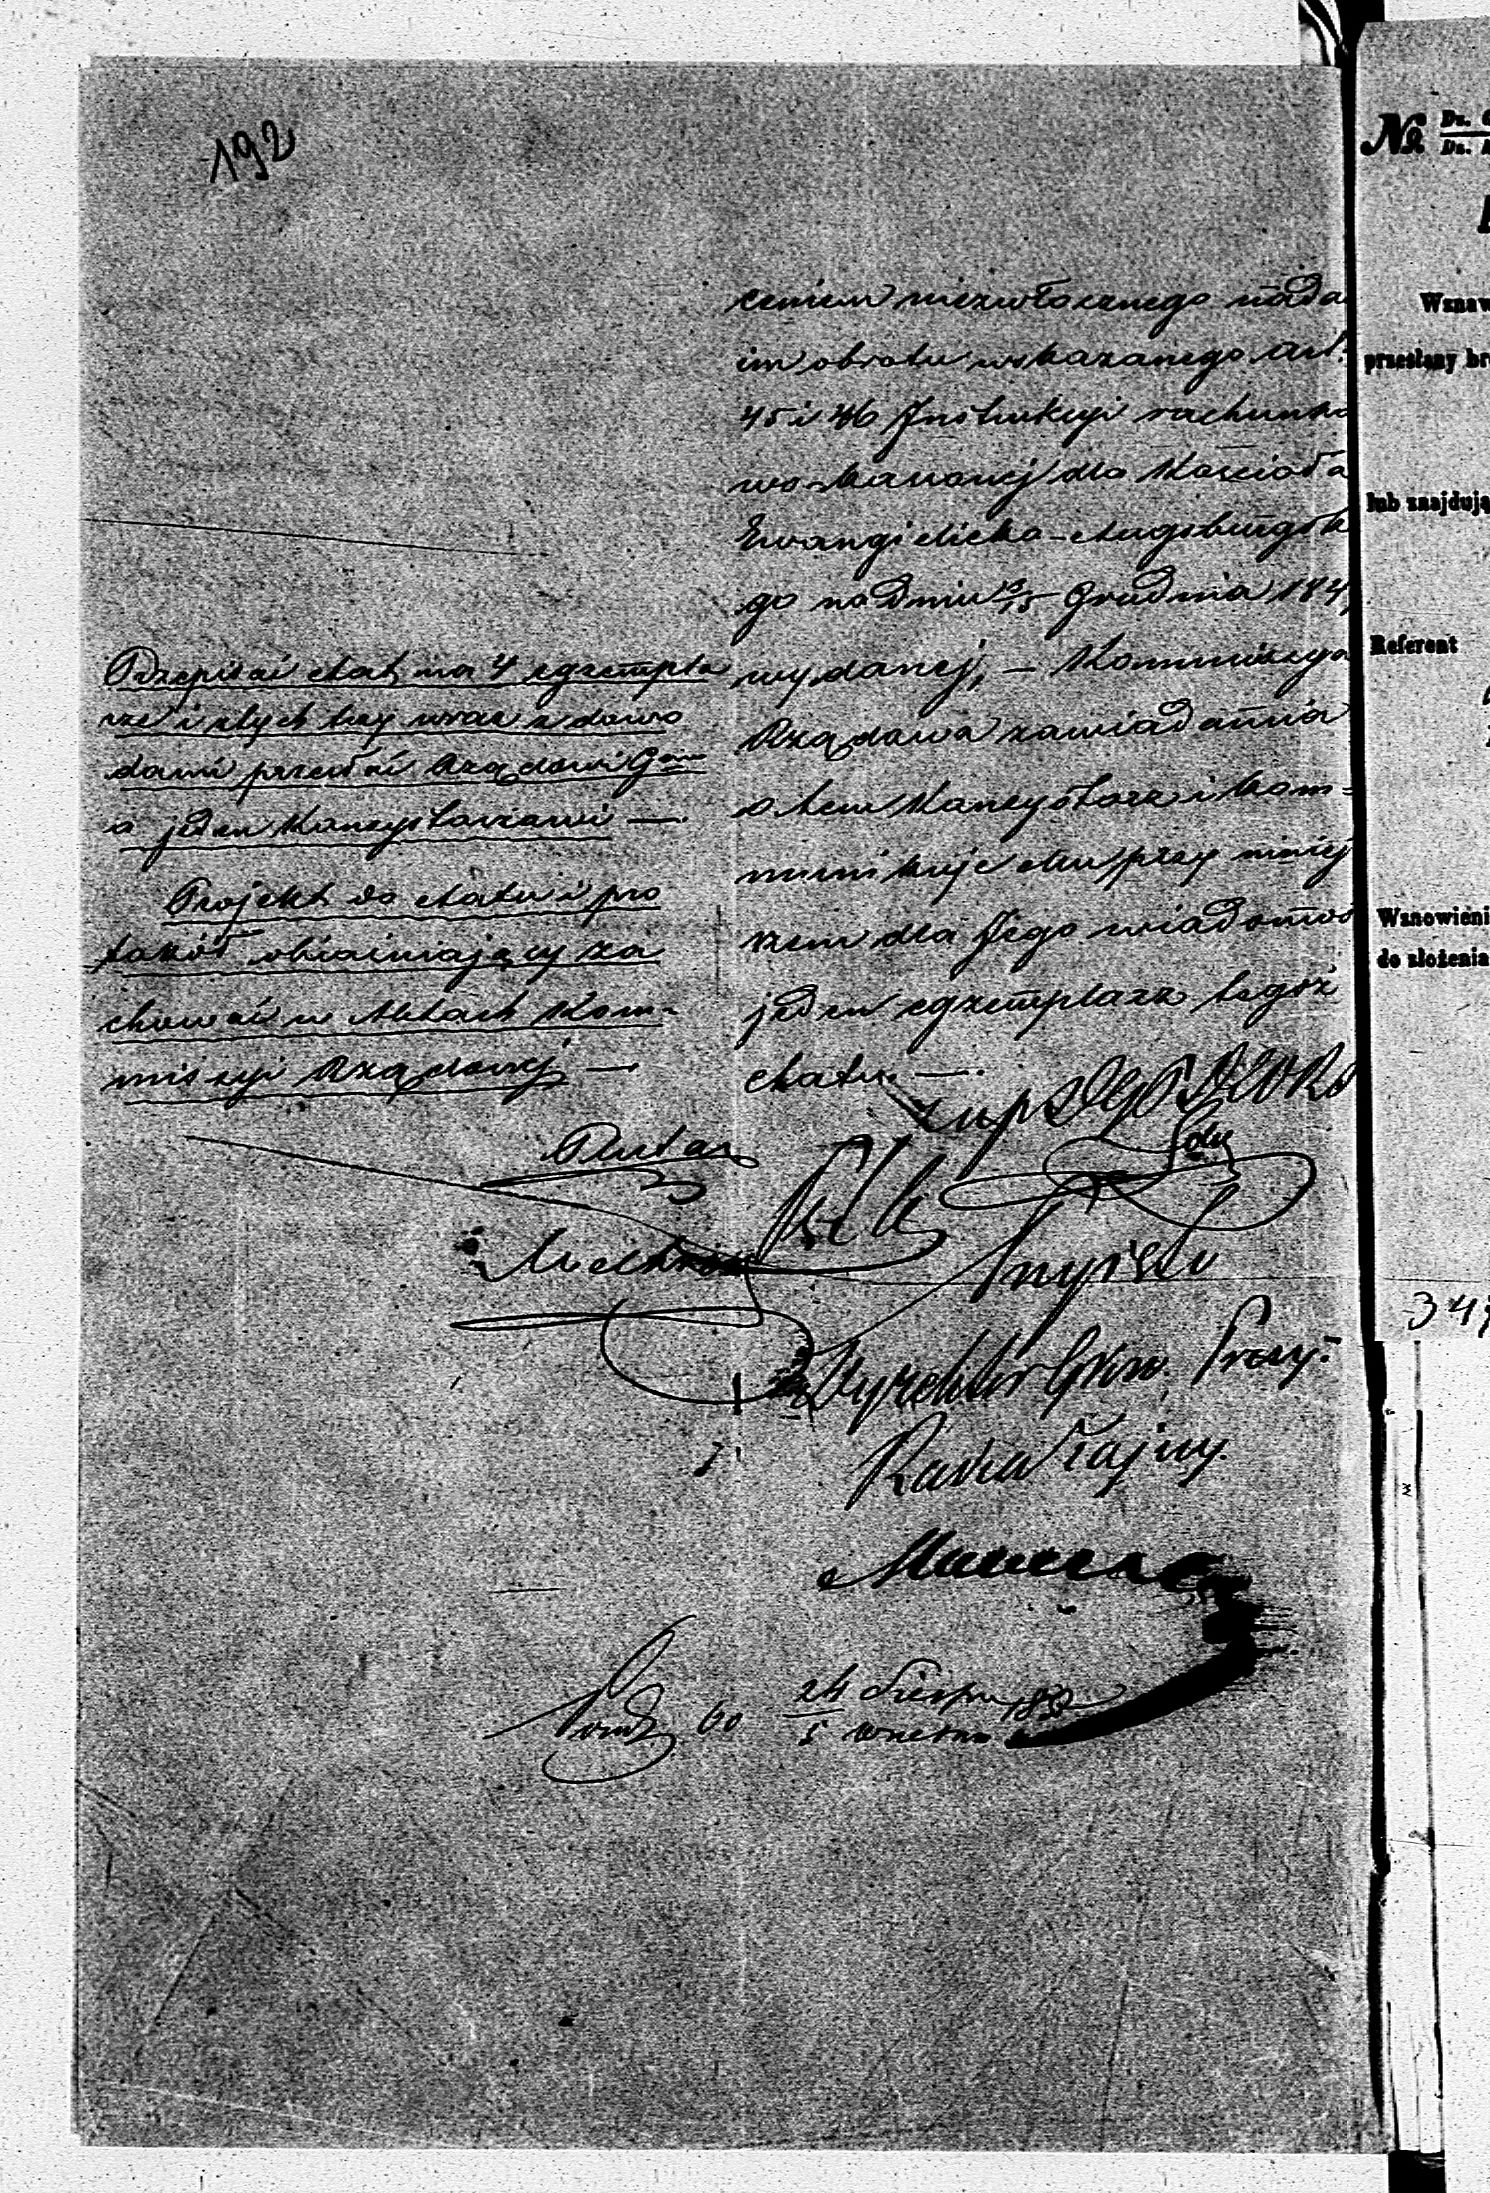 192
ceniem niezwłocznego nada
im obrotu wskazanego art.
45 i 46 Instrukcyi rachunko
wo-kassowej dla Kościoła
Ewangielicko-Augsburgsk
go na dniu 3/15 Grudnia 184
wydanej, — Kommissya
Rządowa zawiadamia
o tem Konsystorz i kom=
munikuje Mu przy niniej
szem dla Jego wiadomoś
jeden egzemplarz tegoż
etatu. —.
Przepisać etat na 4 egzempla
rze i z tych trzy wraz z dowo
dami przesłać Rządowi Gom
a jeden Konsystorzowi —.
Projekt do etatu i pro
tokół obiaśniający za
chować w Aktach Kom=
missyi Rządowej —.
Dyrektor Głów. Prezy.
Radca Tajny.
24 Sierpn
5 Wrześn
No
Dz.
Dz.
Wznaw
przesłany
lub znajdują
Referent
Wznowieni
do złożenia